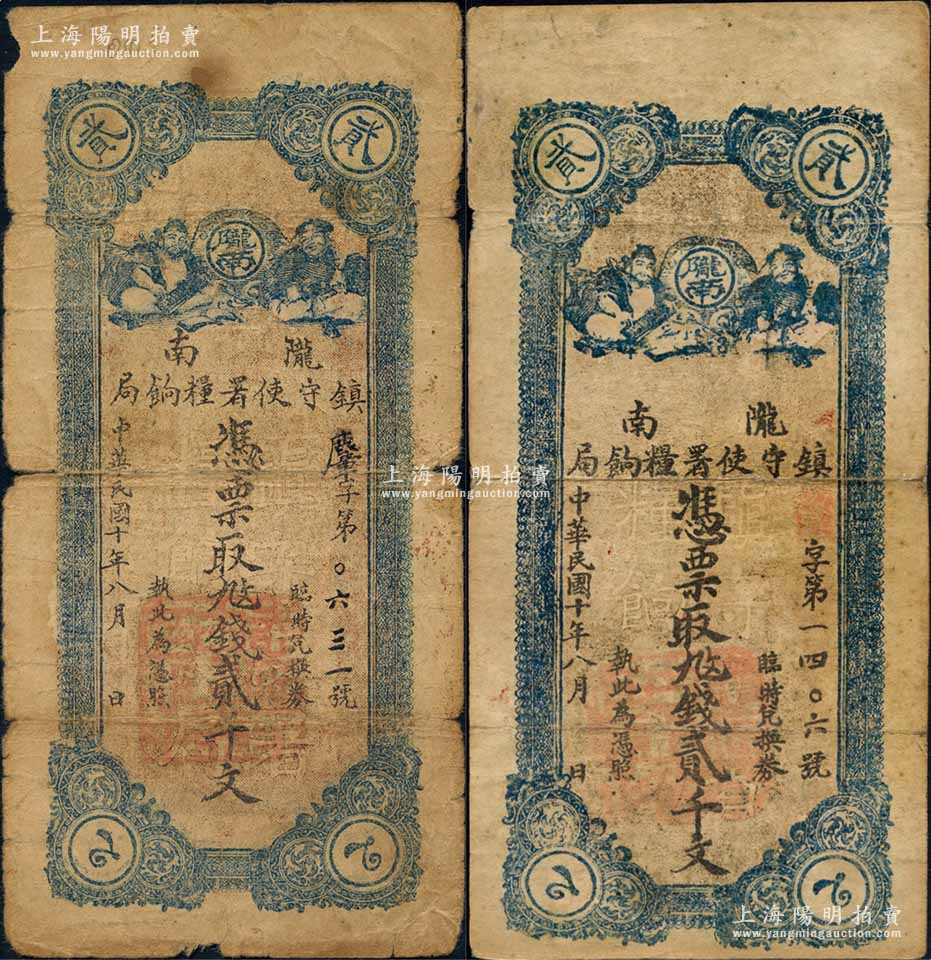 上海陽明拍賣
www.yangmingauction.com
貳
貳
隴南
隴南
鎮守使署糧餉局
字第〇六三一號
臨時兌換券
憑票取九錢貳千文
執此為憑照
中華民國十年八月 日
2
2
上海陽明拍賣
www.yangmingauction.com
上海陽明拍賣
www.yangmingauction.com
貳
貳
隴南
隴南
鎮守使署糧餉局
字第一四〇六號
臨時兌換券
憑票取九錢貳千文
執此為憑照
中華民國十年八月 日
2
2
上海陽明拍賣
www.yangmingauction.com